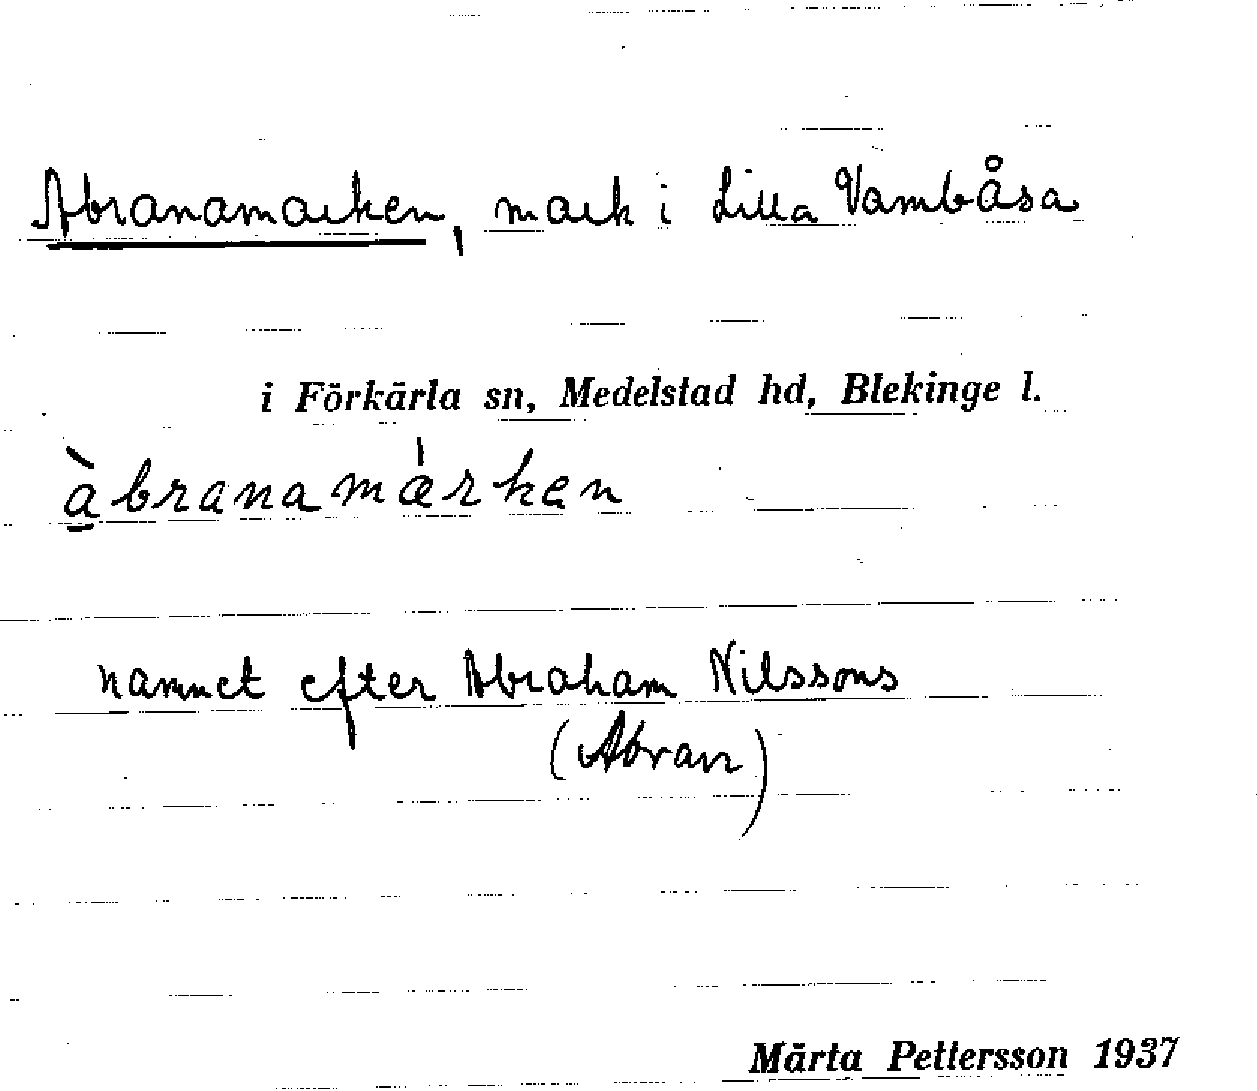 Abranamarken, mark i Lilla Vambåsa
i Förkärla sn, Medelstad hd, Blekinge l.
à̱branamárken
namnet efter Abraham Nilssons
(Abran)
Märta Pettersson 1937